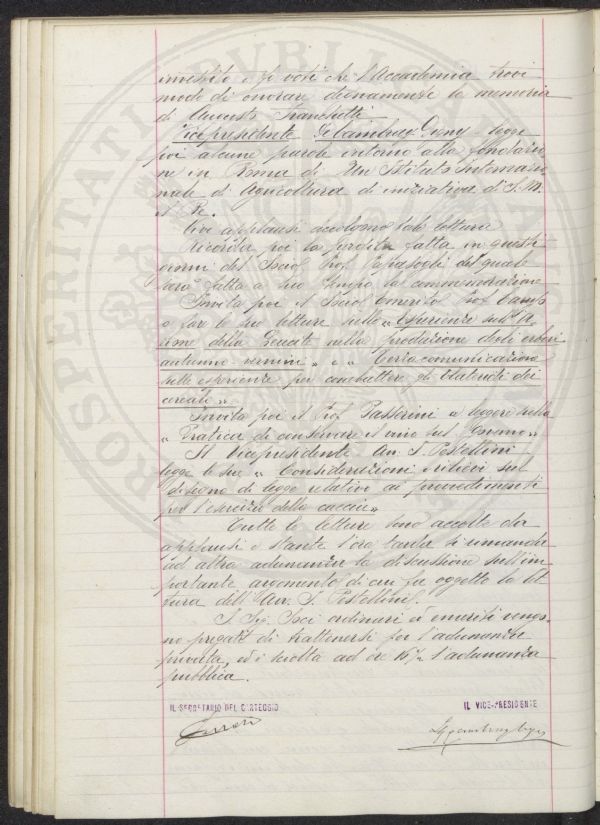 investito e fa voti che l'Accademia trovi
modo di onorare degnamente la memoria
di Augusto Franchetti.
Vicepresidente Dy legge
poi alcune parole intorno alla fondazio
ne in Roma di Un Istituto internazio
nale di Agricoltura di iniziativa di S. M.
il Re.
Vivi applausi accolgono tale lettura
Ricorda poi la perdita fatta in questi
giorni del Socio Prof. Papasogli del quale
sarà fatta a suo tempo la commemorazione
Invita poi il Socio Emerito Prof.
a fare le sue letture sulle « Esperienze sull'a
zione della nella produzione degli erbai
autunno-vernini » e « Terza comunicazione
sulle esperienze per combattere gli Elateridi dei
cereali »
Invita poi il Prof. Passerini a leggere sulla
« Pratica di conservare il vino sul »
Il Vicepresidente Avv. S. Pestellini
legge le sue « Considerazioni critiche sul
disegno di legge relativo ai provvedimenti
per l'esercizio della caccia »
Tutte le letture sono accolte da
applausi e stante l'ora tarda si rimanda
ad altra adunanza la discussione sull'im
portante argomento di cui fa oggetto la let
tura dell'Avv. S. Pestellini.
I Sig. Soci ordinari ed emeriti vengo-
no pregati di trattenersi per l'adunanza
privata, ed è sciolta ad ore 16½ l'adunanza
pubblica.
IL SEGRETARIO DEL CARTEGGIO
IL VICE-PRESIDENTE
PROSPERITATI PVBLICAE